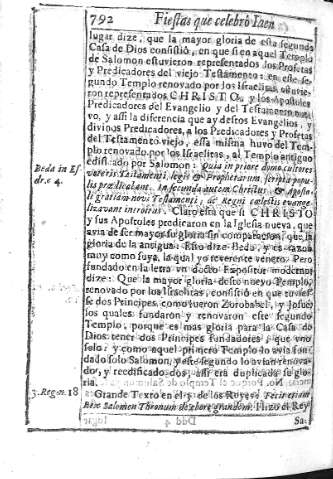 792 Fiestas que celebrò Iaen
lugar dize, que la mayor gloria de esta segundo
Casa de Dios consistiò, en que si en aquel Templo
de Salomon estuvieron representados los Profetas
y Predicadores del viejo Testamento: en este se-
gundo Templo renovado por los Israelitas, estuvie-
ron representados CHRISTO, y los Apostoles
Predicadores del Evangelio y del Testamento nue-
vo, y assi la diferencia que ay destos Evangelios, y
divinos Predicadores, a los Predicadores y Profetas
del Testamento viejo, essa misma huvo del Tem-
plo renovado por los Israelitas, al Templo antiguo
Beda in Es
dr. c 4.
edificado por Salomon: Quia in priore domo cultores
veteris Testamenti, legis & Prophetarum scripta popu-
lis prædicabant. in secunda autem Christus, & Aposto-
li gratiam novi Testamenti, & Regni cœlestis evange-
lizavant introitus. Claro està que si CHRISTO
y sus Apostoles predicaron en la Iglesia nueva, que
avia de ser mayor su gloria sin comparacion, que la
gloria de la antigua: Esto dize Beda, y es razon
muy como suya, la qual yo reverente venero. Pero
fundado en la letra vn docto Expositor moderno
dize: Que la mayor gloria deste nuevo Templo,
renovado por los Israelitas, consistiò en que tuvies-
se dos Principes como fueron Zorobabel, y Josue,
los quales fundaron y renovaron este segundo
Templo, porque es mas gloria para la Casa de
Dios tener dos Principes fundadores, que vno
solo: y como aquel primero Templo lo avia fun-
dado solo Salomon, y este segundo lo avian renova-
do, y reedificado dos, assi era duplicada su glo-
ria.
3. Reg. n. 18
Grande Texto en el 3. de los Reyes: Fecit etiam
Rex Salomon Thronum de ebore grandem. Hizo el Rey
Ddd 4
Sa-